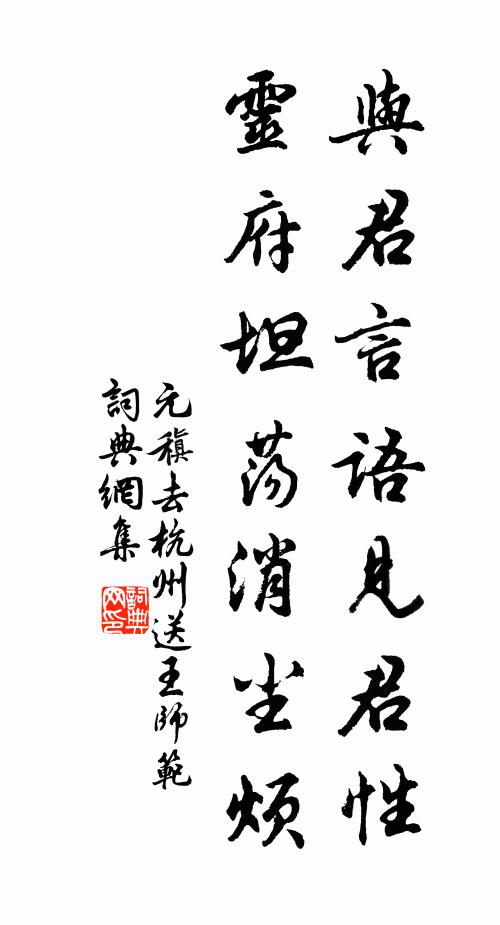 與君言語見君性
靈府坦荡消尘烦
元稹去杭州送王師範
詞典網集
詞典网印